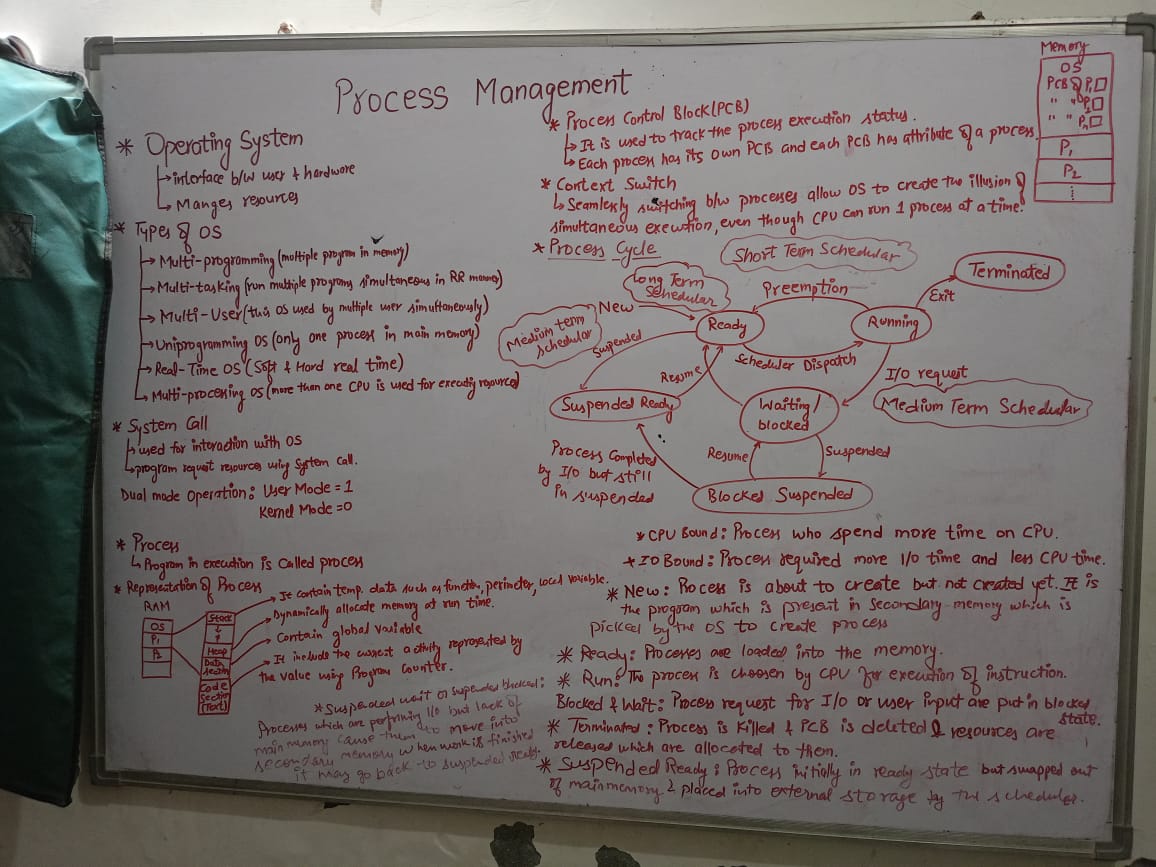 Process Management
* Operating System
→ interface b/w user & hardware
→ Manges resources
* Types of OS
→ Multi-programming (multiple program in memory)
→ Multi-tasking (run multiple programs simultaneous in RR manner)
→ Multi-User (this OS used by multiple user simultaneously)
→ Uniprogramming OS (only one process in main memory)
→ Real-Time OS (Soft & Hard real time)
→ Multi-processing OS (more than one CPU is used for executing resources)
* System Call
→ used for interaction with OS
→ program request resources using System Call.
Dual mode operation: User Mode = 1
Kernel Mode = 0
* Process
↳ Program in execution is called process
* Representation of Process
RAM
OS
P1
P2
Stack
↓
↑
Heap
Data
Section
Code
Section
(Text)
→ It contain temp. data such as function, perimeter, local variable.
→ Dynamically allocate memory at run time.
→ Contain global variable
→ It include the current activity represented by
the value using Program Counter.
* Suspended wait or suspended blocked:
Processes which are performing I/O but lack of
main memory cause them to move into
secondary memory when work is finished
it may go back to suspended ready.
* Process Control Block (PCB)
↳ It is used to track the process execution status.
↳ Each process has its own PCB and each PCB has attribute of a process.
* Context Switch
↳ Seamlessly switching b/w processes allow OS to create the illusion of
simultaneous execution, even though CPU can run 1 process at a time.
Memory
OS
PCB of P1
" " P2
" " Pn
P1
P2
⋮
* Process Cycle
Short Term Schedular
Long Term
Schedular
Medium term
schedular
New
Ready
Preemption
Running
Exit
Terminated
Suspended
Resume
Scheduler Dispatch
I/O request
Medium Term Schedular
Suspended Ready
Waiting/
blocked
Process Completed
by I/O but still
in suspended
Resume
Suspended
Blocked Suspended
* CPU Bound: Process who spend more time on CPU.
* IO Bound: Process required more I/O time and less CPU time.
* New: Process is about to create but not created yet. It is
the program which is present in secondary memory which is
picked by the OS to create process
* Ready: Processes are loaded into the memory.
* Run: The process is choosen by CPU for execution of instruction.
Blocked & Wait: Process request for I/O or user input are put in blocked
state.
* Terminated: Process is killed & PCB is deleted & resources are
released which are allocated to them.
* Suspended Ready: Process initially in ready state but swapped out
of main memory & placed into external storage by the scheduler.